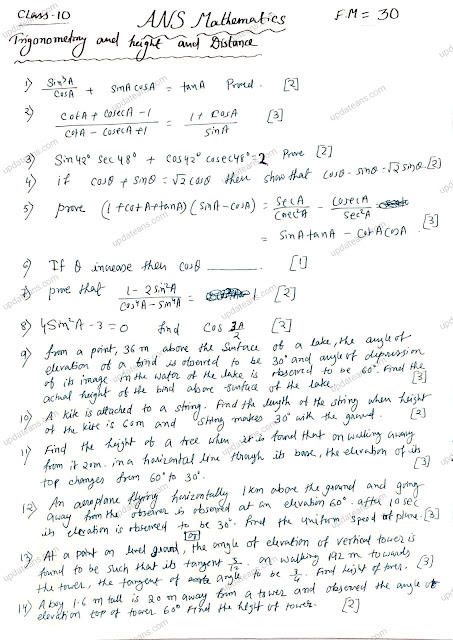 Class-10 ANS Mathematics F.M = 30
Trigonometry and height and Distance
1) Sin³A/CosA + sinA cosA = tanA Proved. [2]
2) CotA + cosecA - 1 / CotA - cosecA + 1 = 1 + cosA / sinA [3]
3) Sin42° sec48° + cos42° cosec48° = 2 Prove [2]
4) if cosθ + sinθ = √2 cosθ then show that cosθ - sinθ = √2 sinθ [2]
5) prove (1 + cotA + tanA) (sinA - cosA) = SecA/Cosec²A - CosecA/Sec²A
= sinA tanA - CotA CosA. [3]
6) If θ increase then cosθ ______. [1]
7) prove that 1 - 2sin²A / Cos⁴A - Sin⁴A = 1 [2]
8) 4Sin²A - 3 = 0 find Cos 3A/2 [2]
9) from a point, 36 m above the surface of a lake, the angle of
elevation of a bird is observed to be 30° and angle of depression
of its image in the water of the lake is observed to be 60°. Find the
actual height of the bird above surface of the lake. [3]
10) A kite is attached to a string. Find the length of the string when height
of the kite is 60m and string makes 30° with the ground. [2]
11) Find the height of a tree when it is found that on walking away
from it 20m. in a horizontal line through its base, the elevation of its
top changes from 60° to 30°. [3]
12) An aeroplane flying horizontally 1km above the ground and going
away from the observer is observed at an elevation 60°. after 10 sec
its elevation is observed to be 30°. Find the uniform speed of plane. [3]
[or]
13) At a point on level ground, the angle of elevation of vertical tower is
found to be such that its tangent 5/12. on walking 192 m towards
the tower, the tangent of angle to be 3/4. Find height of tower. [3]
14) A boy 1.6 m tall is 20 m away from a tower and observed the angle of
elevation top of tower 60° Find the height of tower. [2]
updateans.com